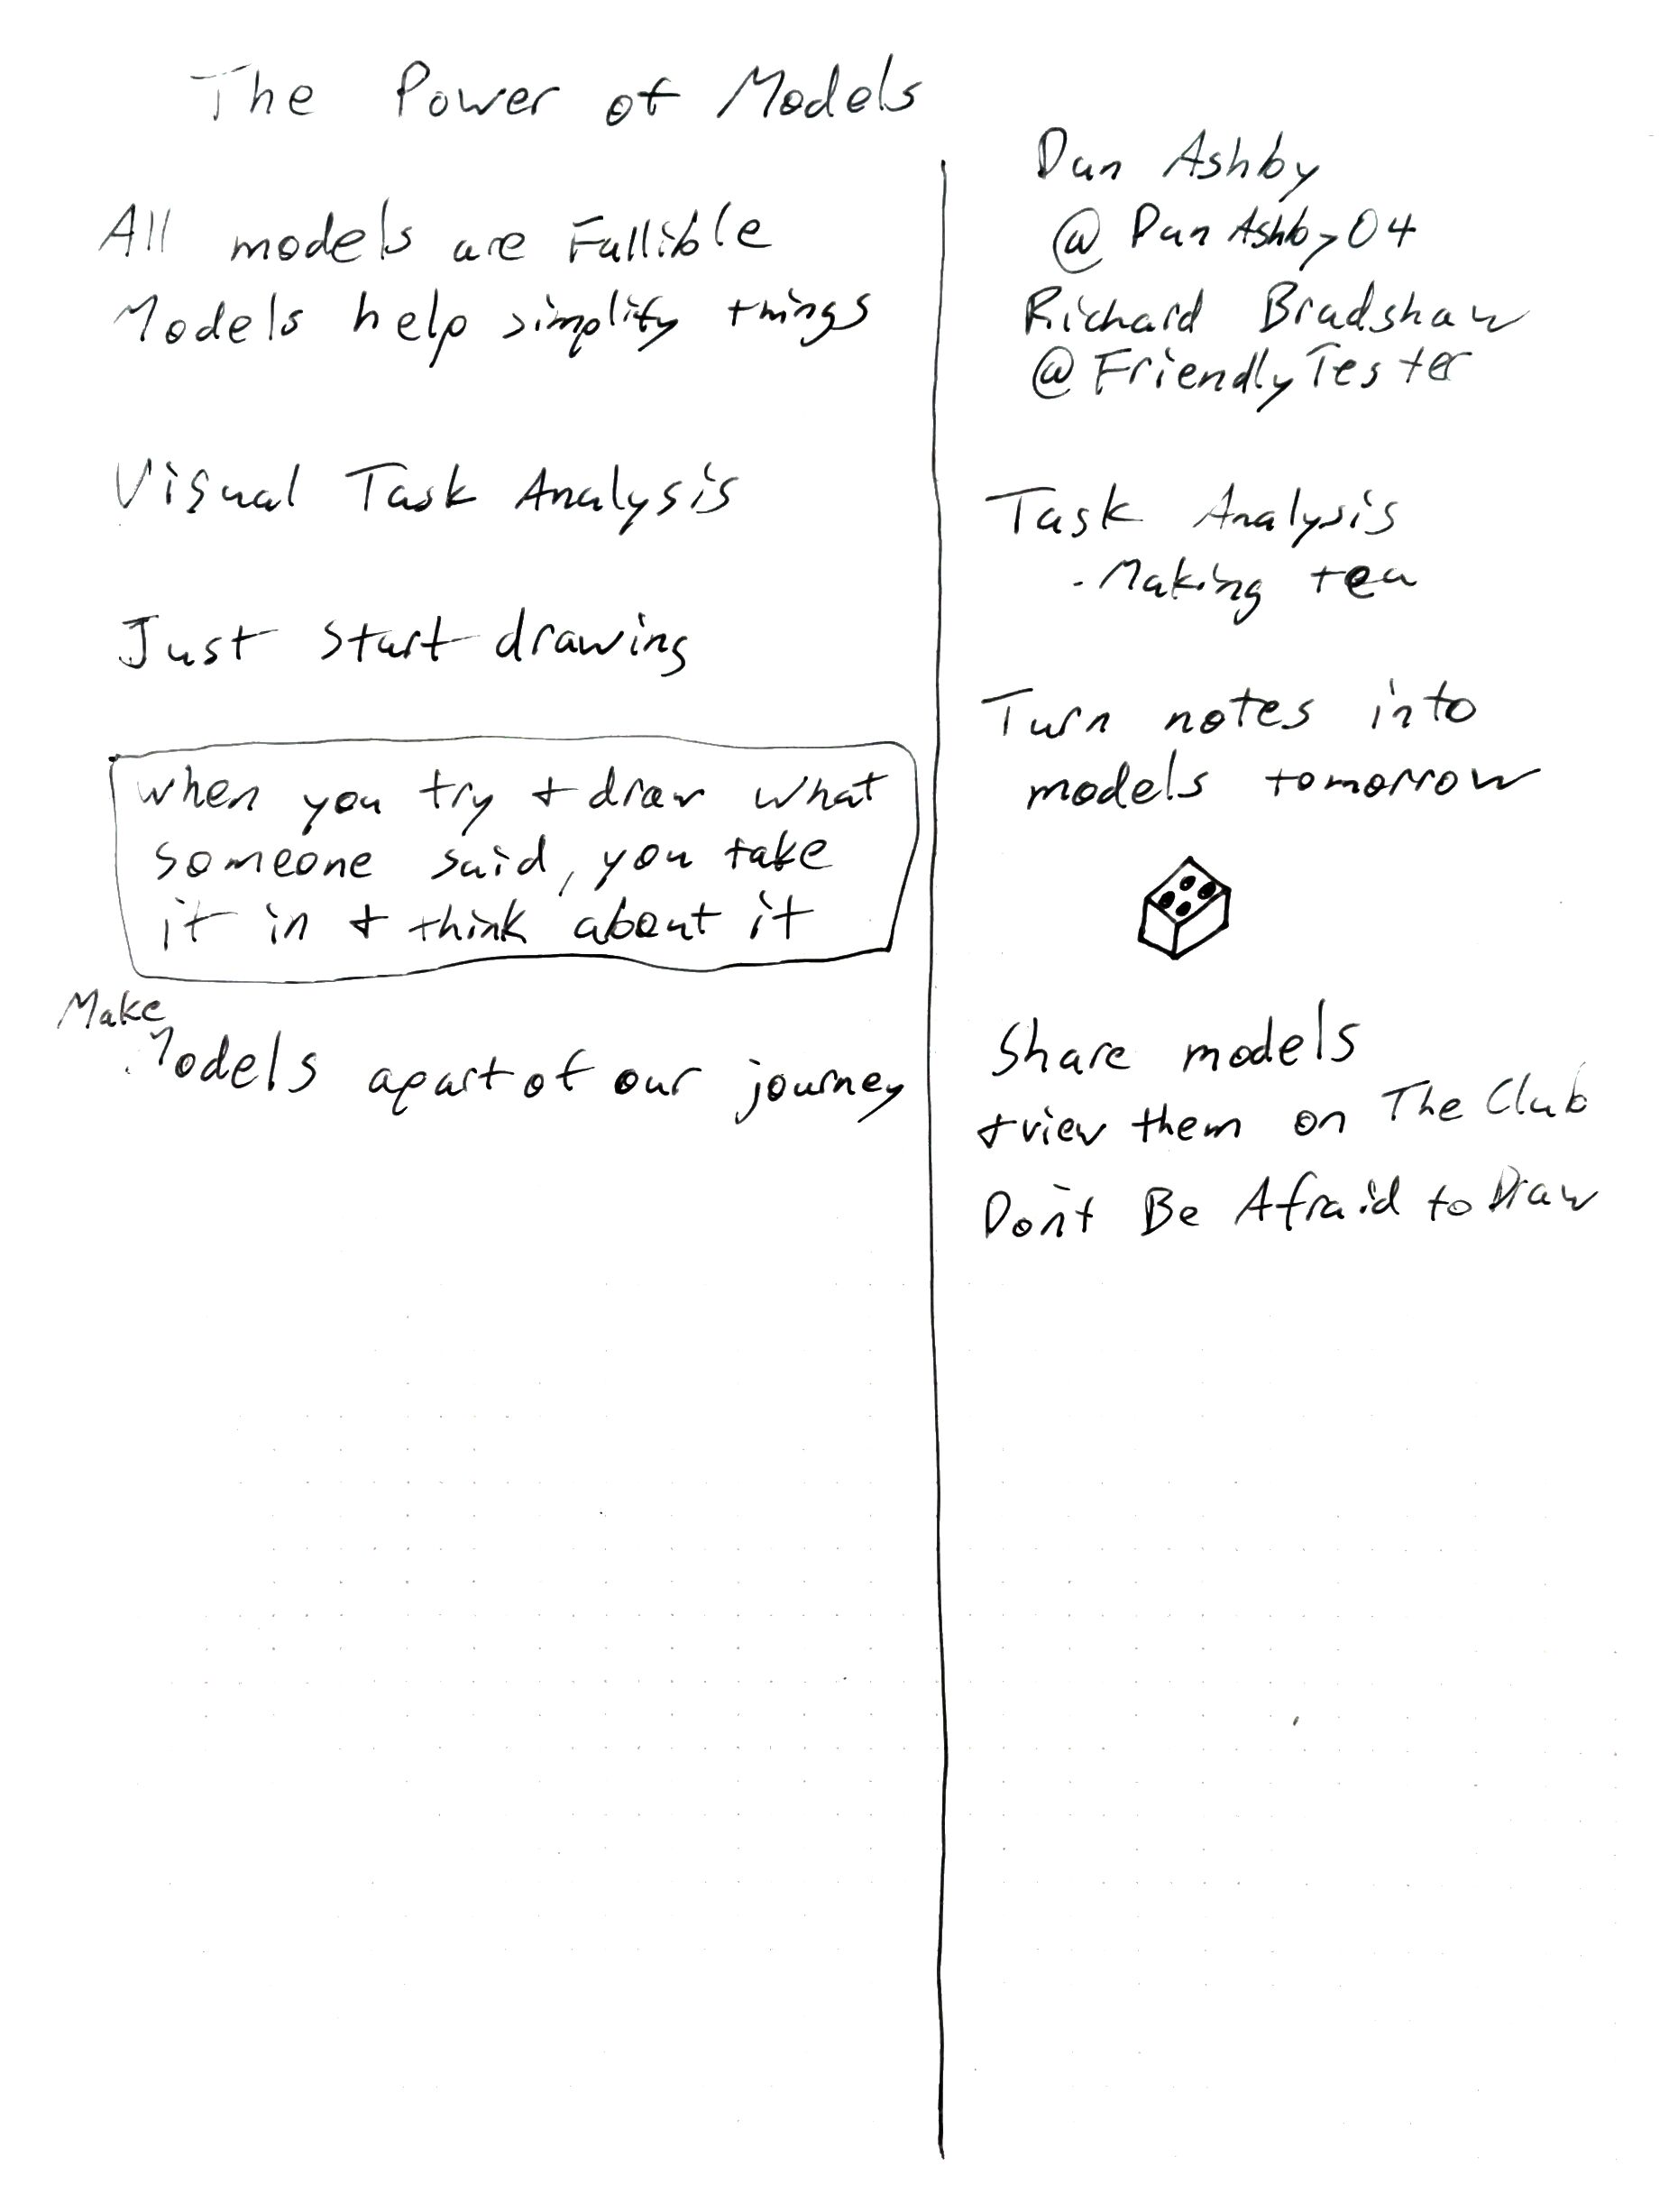 The Power of Models
All models are Fallible
Models help simplify things
Visual Task Analysis
Just start drawing
when you try + draw what
someone said, you take
it in + think about it
Make
Models apart of our journey
Dan Ashby
@DanAshby04
Richard Bradshaw
@FriendlyTester
Task Analysis
- Making tea
Turn notes into
models tomorrow
Share models
+ view them on The Club
Don't Be Afraid to Draw